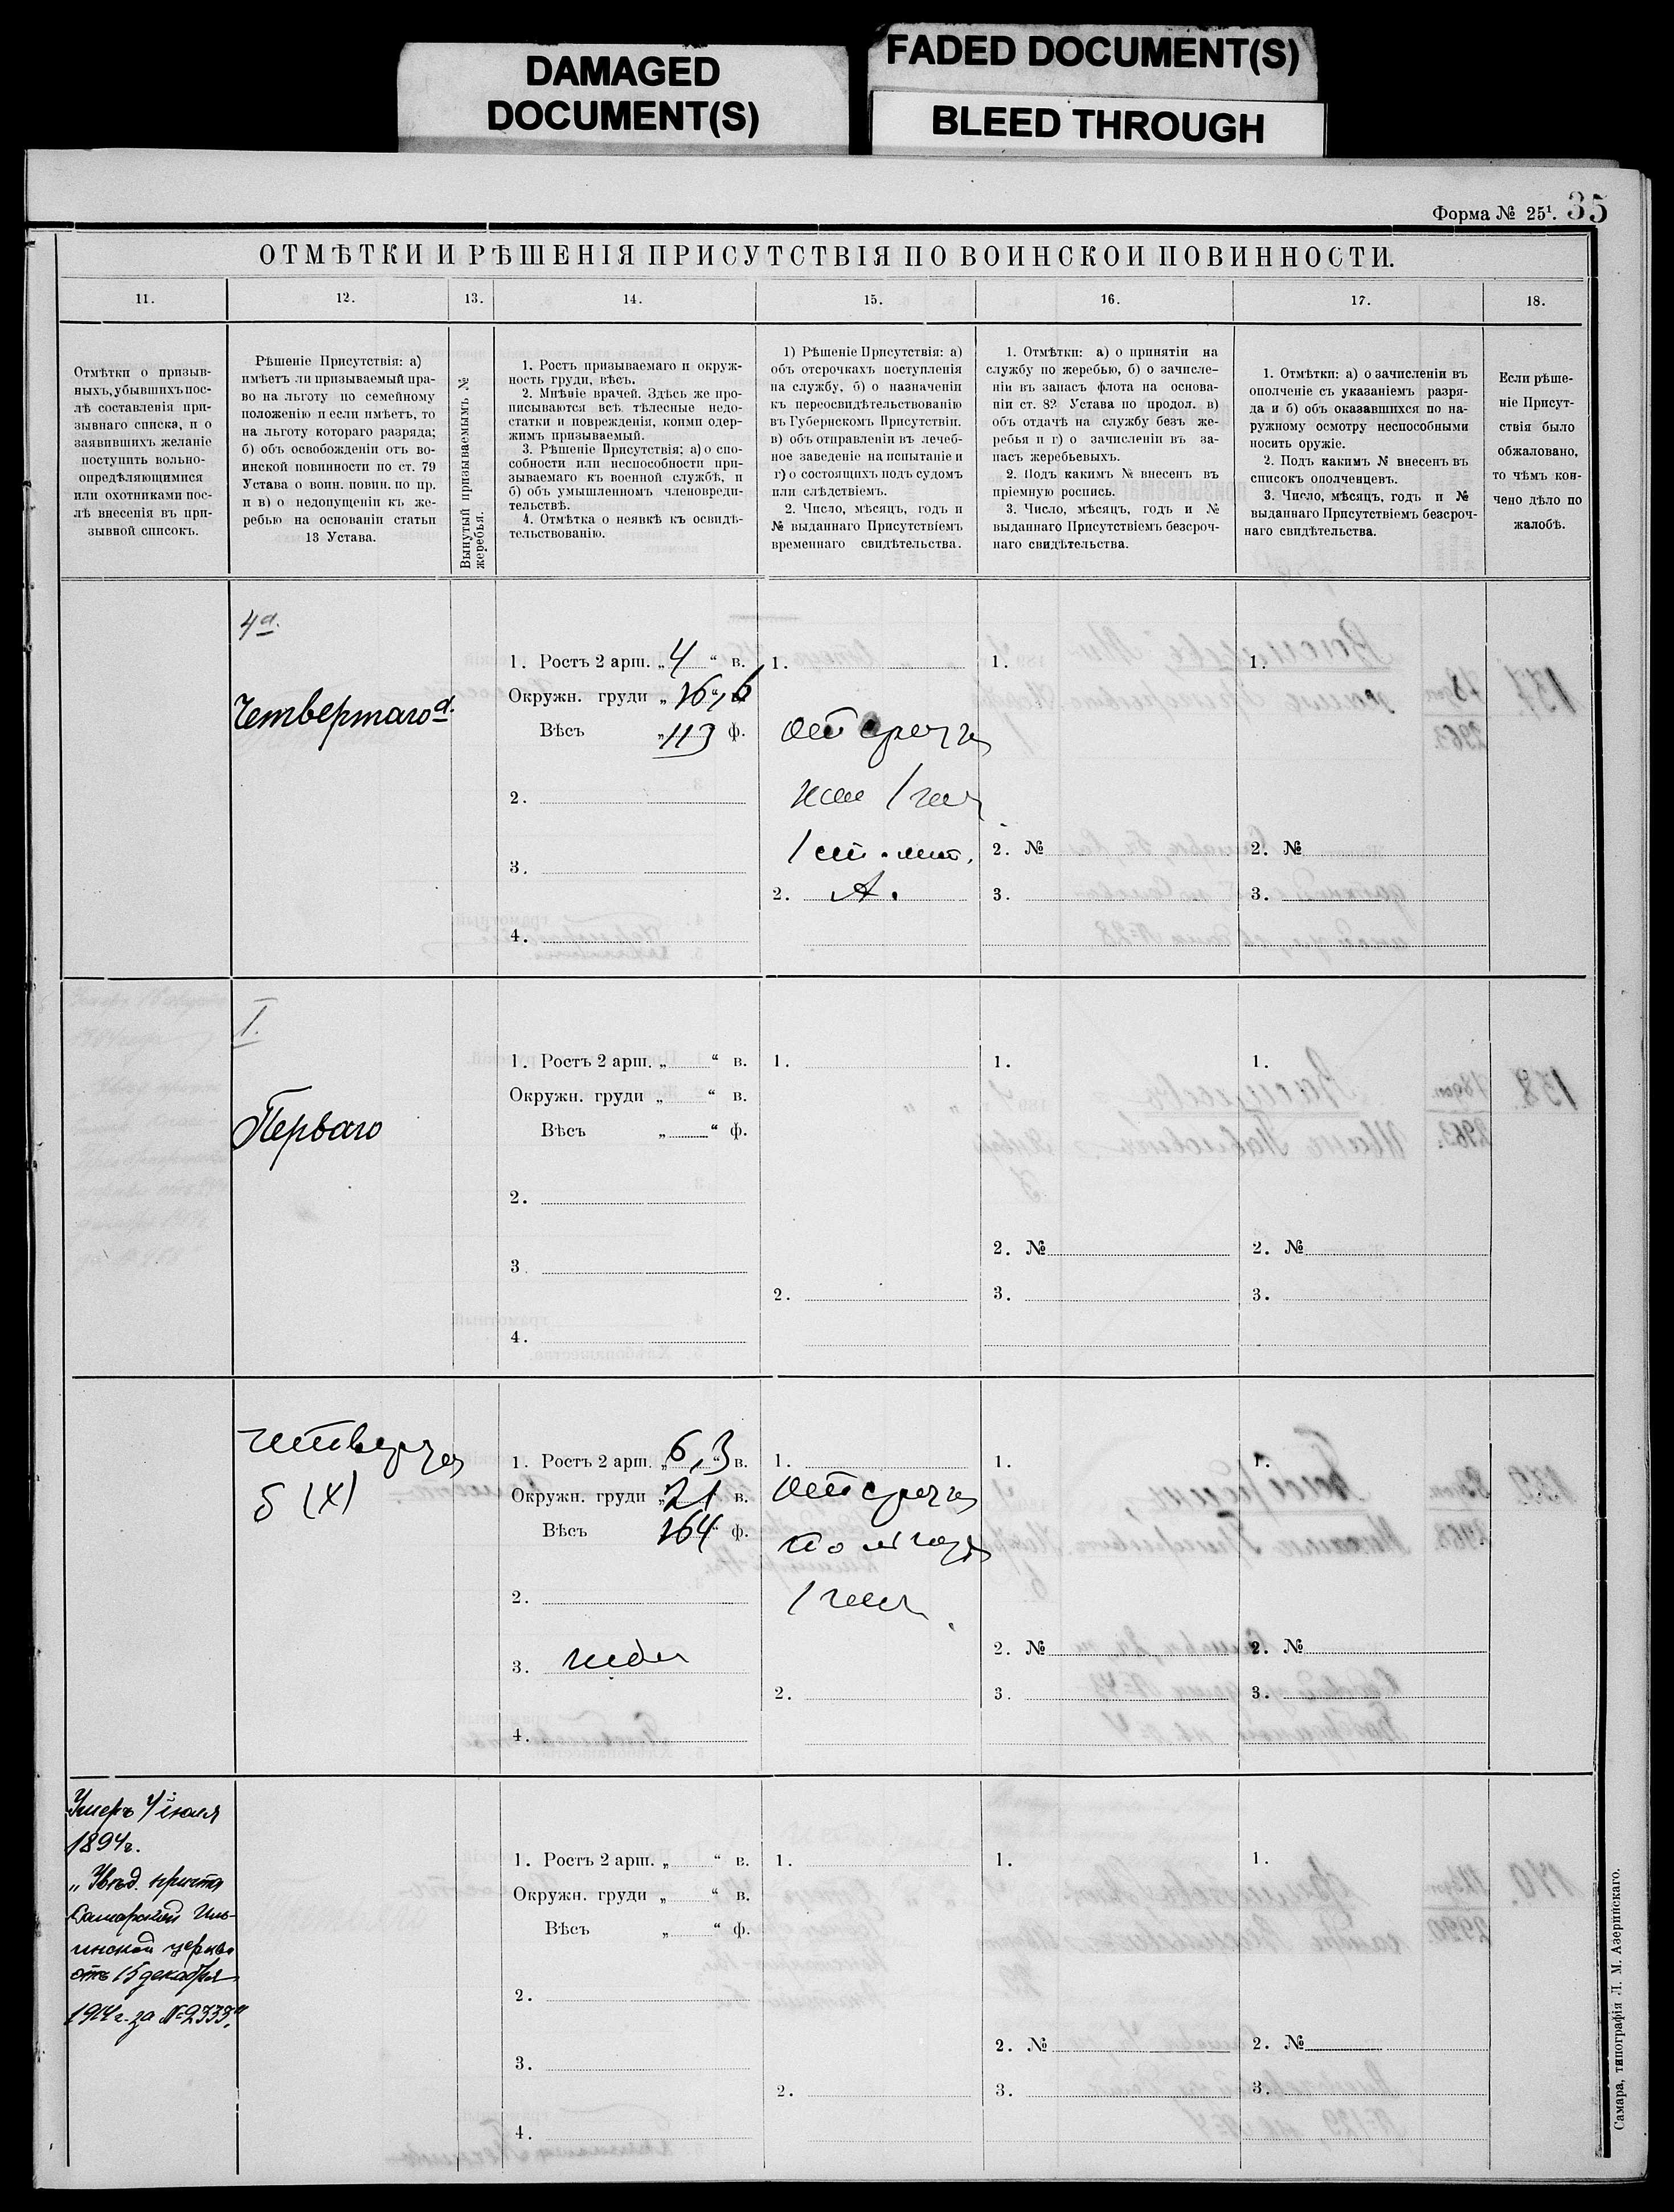 DAMAGED
DOCUMENT(S)
FADED DOCUMENT(S)
BLEED THROUGH
Форма № 25¹. 35
ОТМѢТКИ И РѢШЕНІЯ ПРИСУТСТВІЯ ПО ВОИНСКОИ ПОВИННОСТИ.
11.
12.
13.
14.
15.
16.
17.
18.
Отмѣтки о призыв-
ныхъ, убывшихъ пос-
лѣ составленія при-
зывнаго списка, и о
заявившихъ желаніе
поступить вольно-
опредѣляющимися
или охотниками пос-
лѣ внесенія въ при-
зывной списокъ.
Рѣшеніе Присутствія: а)
имѣетъ ли призываемый пра-
во на льготу по семейному
положенію и если имѣетъ, то
на льготу котораго разряда;
б) объ освобожденіи отъ во-
инской повинности по ст. 79
Устава о воин. повин. по пр.
и в) о недопущеніи къ же-
ребью на основаніи статьи
13 Устава.
Вынутый призываемымъ №
жеребья.
1. Ростъ призываемаго и окруж-
ность груди, вѣсъ.
2. Мнѣніе врачей. Здѣсь же про-
писываются всѣ тѣлесные недо-
статки и поврежденія, коими одер-
жимъ призываемый.
3. Рѣшеніе Присутствія: а) о спо-
собности или неспособности при-
зываемаго къ военной службѣ, и
б) объ умышленномъ членовреди-
тельствѣ.
4. Отмѣтка о неявкѣ къ освидѣ-
тельствованію.
1) Рѣшеніе Присутствія: а)
объ отсрочкахъ поступленія
на службу, б) о назначеніи
къ переосвидѣтельствованію
въ Губернскомъ Присутствіи.
в) объ отправленіи въ лечеб-
ное заведеніе на испытаніе и
г) о состоящихъ подъ судомъ
или слѣдствіемъ.
2. Число, мѣсяцъ, годъ и
№ выданнаго Присутствіемъ
временнаго свидѣтельства.
1. Отмѣтки: а) о принятіи на
службу по жеребью, б) о зачисле-
ніи въ запасъ флота на основа-
ніи ст. 82 Устава по продол. в)
объ отдачѣ на службу безъ же-
ребья и г) о зачисленіи въ за-
пасъ жеребьевыхъ.
2. Подъ какимъ № внесенъ въ
пріемную роспись.
3. Число, мѣсяцъ, годъ и №
выданнаго Присутствіемъ безсроч-
наго свидѣтельства.
1. Отмѣтки: а) о зачисленіи въ
ополченіе съ указаніемъ разря-
да и б) объ оказавшихся по на-
ружному осмотру неспособными
носить оружіе.
2. Подъ какимъ № внесенъ въ
списокъ ополченцевъ.
3. Число, мѣсяцъ, годъ и №
выданнаго Присутствіемъ безсроч-
наго свидѣтельства.
Если рѣше-
ніе Присут-
ствія было
обжаловано,
то чѣмъ кон-
чено дѣло по
жалобѣ.
4а.
Четвертаго а.
1. Ростъ 2 арш. „ 4 “ в.
Окружн. груди „ 16, 6
Вѣсъ „ 113 ф.
2.
3.
4.
1.
Отсрочка
на 1 годъ
2. А.
1.
2. №
3.
1.
2. №
3.
I.
Перваго
1. Ростъ 2 арш. „ “ в.
Окружн. груди „ “ в.
Вѣсъ „ “ ф.
2.
3.
4.
1.
2.
1.
2. №
3.
1.
2. №
3.
Четверга
б (х)
1. Ростъ 2 арш. „ 6,3 в.
Окружн. груди „ 21 в.
Вѣсъ 164 ф.
2.
3. годен
4.
1.
Отсрочка
2.
1.
2. №
3.
1.
2. №
3.
Умеръ 4 іюля
1894 г.
„Увѣд. причта
Самарской Иль-
инской церкви
отъ 15 декабря
1914 г. за № 2333.“
1. Ростъ 2 арш. „ “ в.
Окружн. груди „ “ в.
Вѣсъ „ “ ф.
2.
3.
4.
1.
2.
1.
2. №
3.
1.
2. №
3.
Самара, типографія Л. М. Азерийскаго.